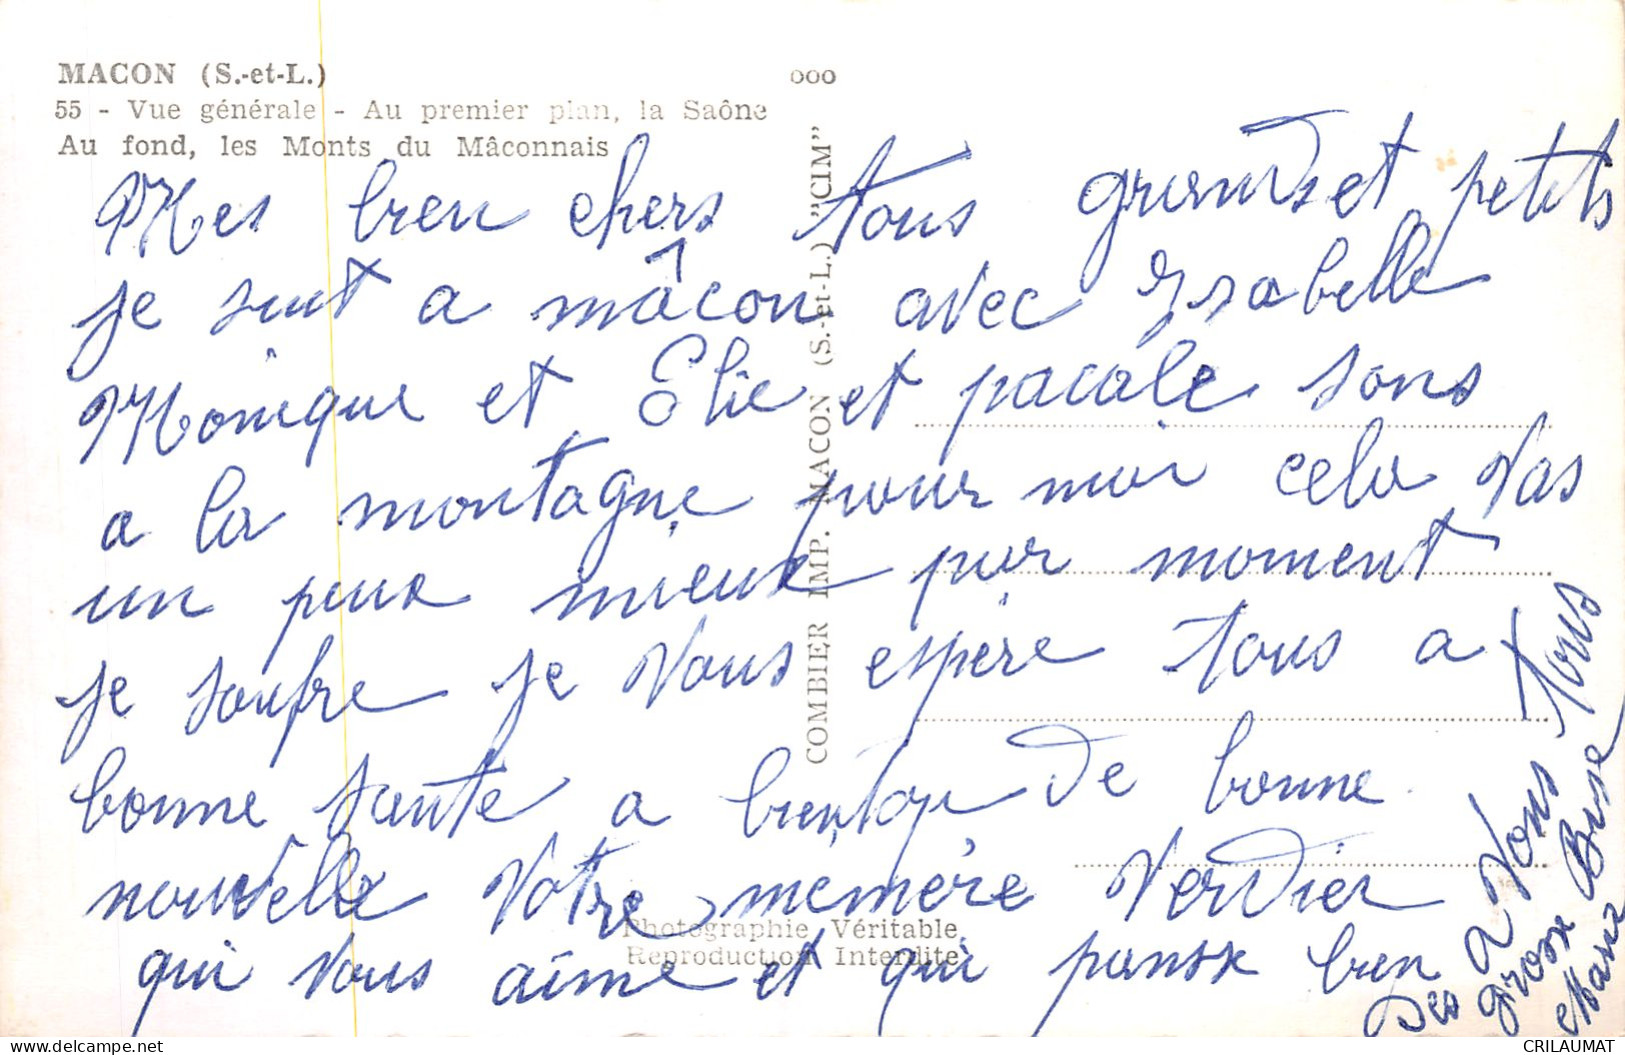 MACON (S.-et-L.)
55 - Vue générale - Au premier plan, la Saône
Au fond, les Monts du Mâconnais
ooo
COMBIER IMP. MACON (S.-et-L.) "CIM"
Photographie Véritable
Reproduction Interdite
Mes bien chers tous grands et petits
je suit a mâcon avec Isabelle
Monique et Elie et pacale sons
a la montagne pour moi cela vas
un peux mieux par moment
je soufre je vous espère tous a
bonne sante a bientot de bonne
nouvelle votre mémére Verdier
qui vous aime et qui pansx bien
a vous tous
Des gross Bise
CRILAUMAT
delcampe.net